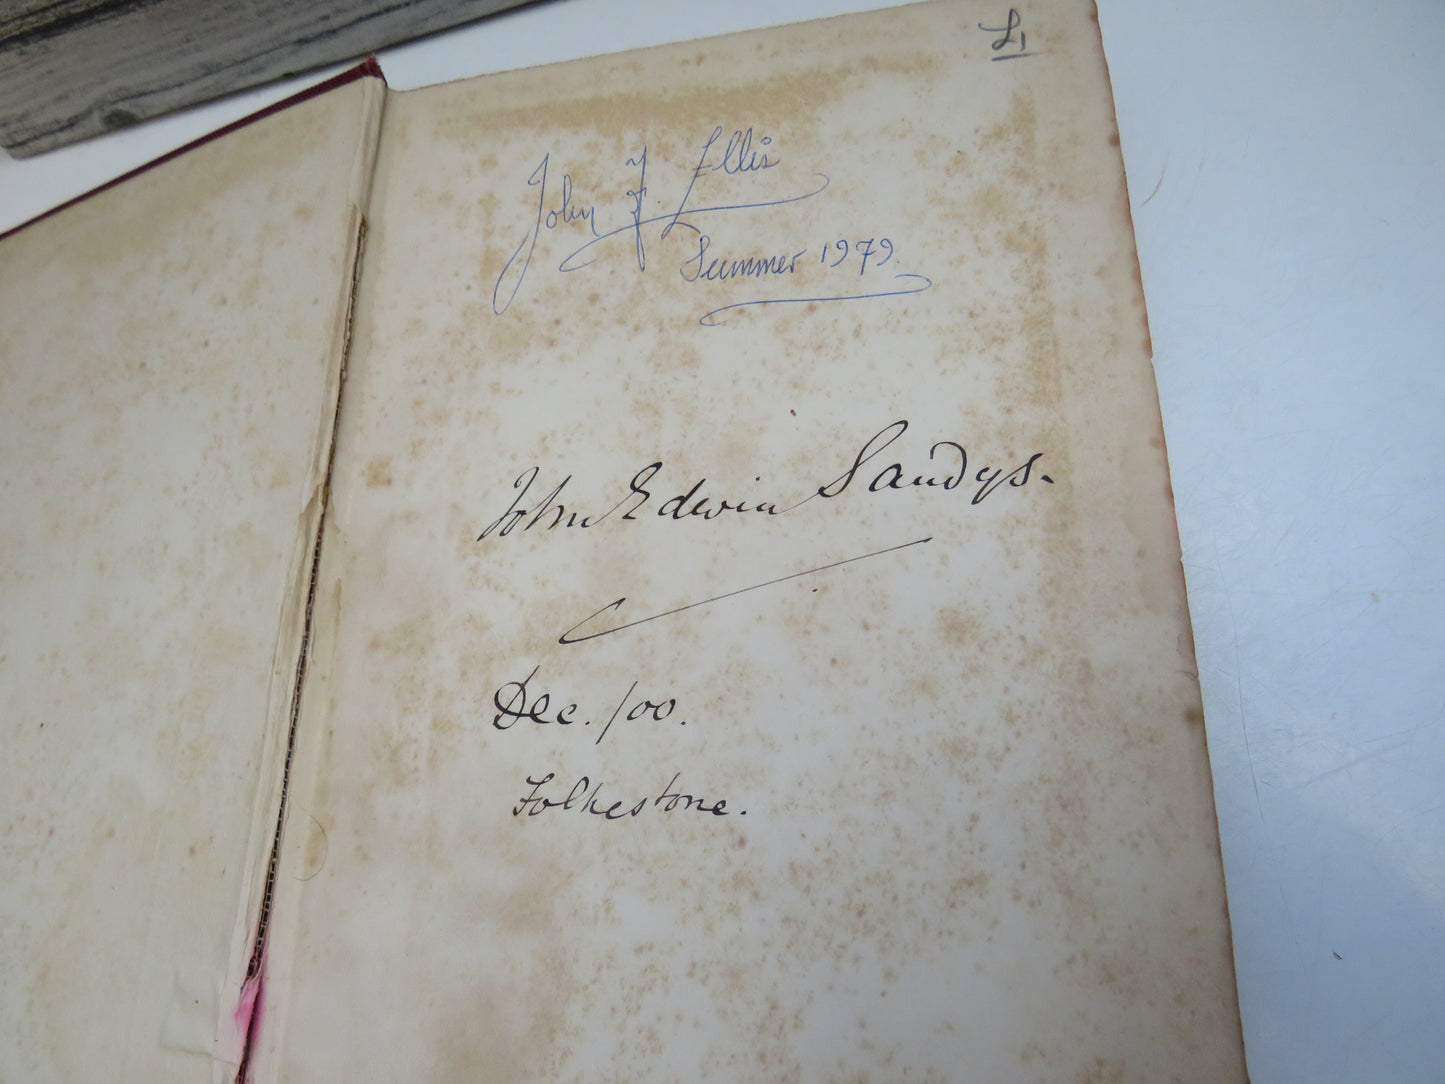 £1
John F. Ellis
Summer 1979.
John Edwin Sandys.
Dec. /00.
Folkestone.